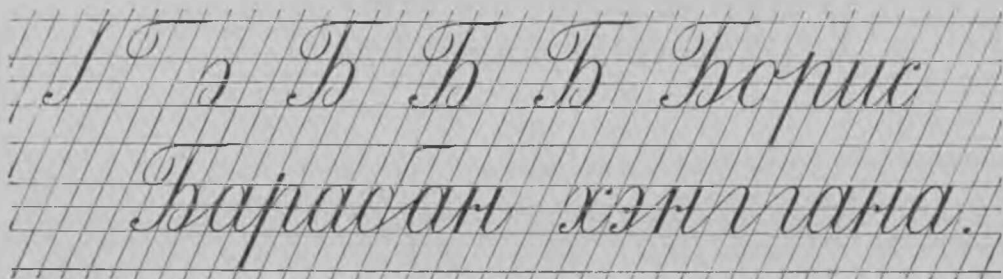 Б Б Б Б Борис
Барабан хэнггана.